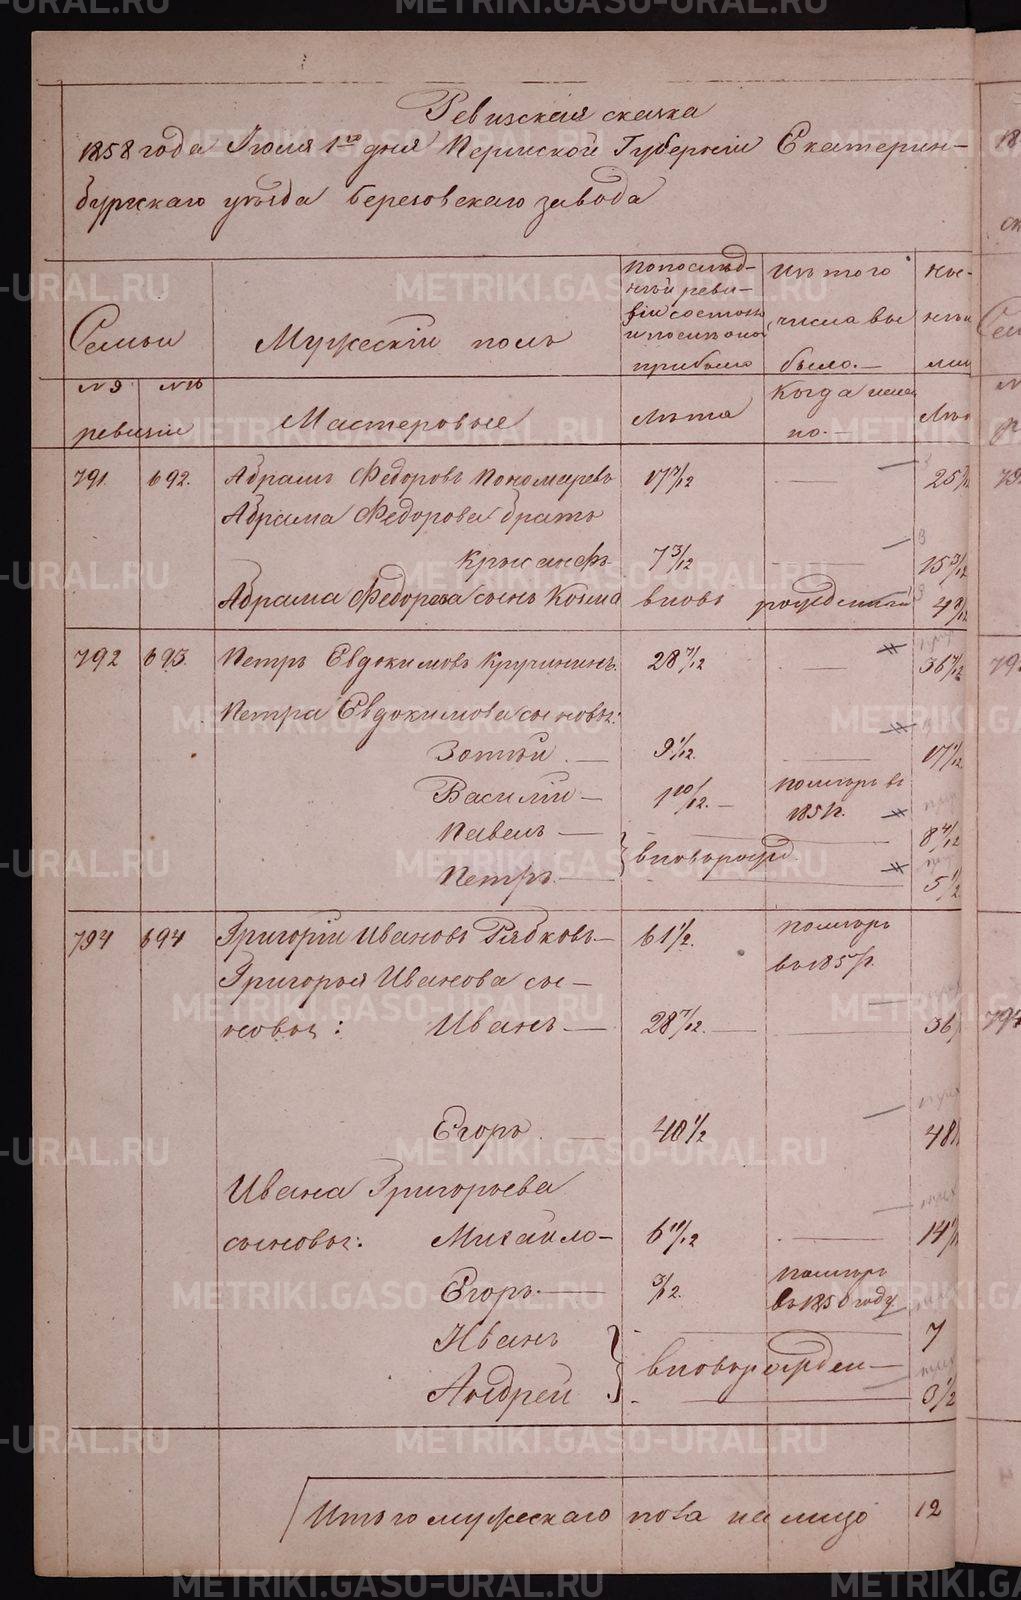 Ревизская сказка
1858 года Июля 1го дня Пермской Губернiи Екатерин-
бургскаго уѣзда Березовскаго завода
Семьи
Мужескiй полъ
по послѣд-
ней реви-
зiи состояло
и послѣ оной
прибыло
Изъ того
числа вы
было.
№№ №№
ревизiи
Мастеровые
Лѣта
Когда имен
но.
791. 692. Абрамъ Федоровъ Пономаревъ 17 7/12 25
Абрама Федорова братъ
Крысанфъ 7 3/12 15 3/12
Абрама Федорова сынъ Козма вновь рожденный 4
792 693. Петръ Евдокимовъ Кручининъ 28 7/12 36 7/12
Петра Евдокимова сыновья:
Зотѣй 9 1/12. 17 1/12
Василiй 1 10/12. померъ въ
1851 г.
Павелъ 8 4/12
вновь рожд.
Петръ 5 1/2
794 694 Григорiй Ивановъ Рябковъ 61 1/2. померъ
въ 1857 г.
Григорья Иванова сы-
новья: Иванъ 28 7/12. 36
Егоръ 40 1/2 48
Ивана Григорьева
сыновья: Михайло 6 11/12 14
Егоръ 3/12. померъ
въ 1850 году
Иванъ 7
вновь рожден
Андрей 3 1/2
Итого мужескаго пола на лицо 12
METRIKI.GASO-URAL.RU